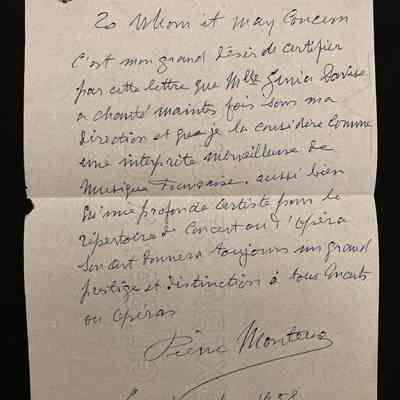 To Whom it may Concern
C'est mon grand désir de certifier
par cette lettre que Mlle Genia
a chanté maintes fois sous ma
direction et que je la considère comme
une interprète merveilleuse de
Musique Française. aussi bien
qu'une profonde artiste pour le
répertoire de Concert ou l'Opéra
Son art donnera toujours un grand
prestige et distinction à tous Concerts
ou Opéras
Pierre Monteux